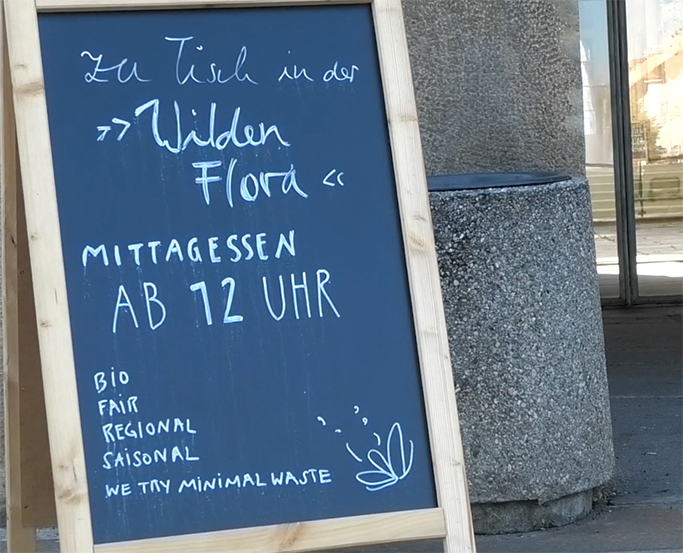 Zu Tisch in der
»Wilden
Flora«
MITTAGESSEN
AB 12 UHR
BIO
FAIR
REGIONAL
SAISONAL
WE TRY MINIMAL WASTE